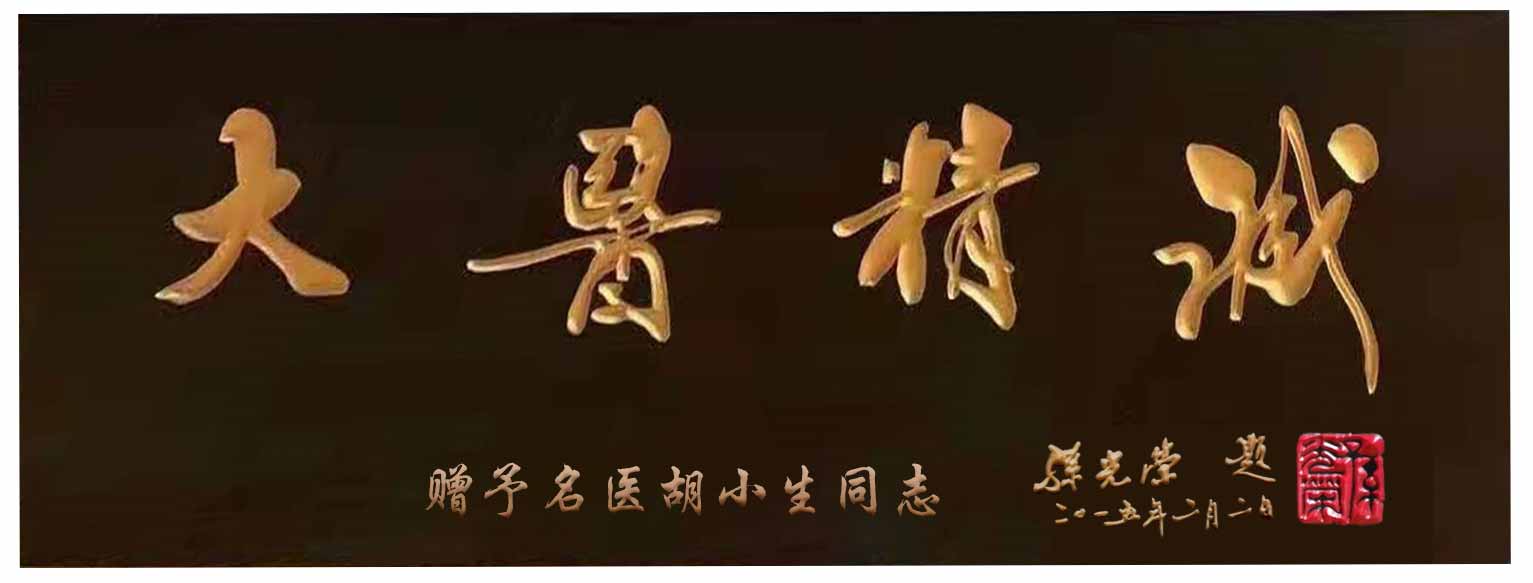 大醫精诚
赠予名医胡小生同志
孫光荣 题
二〇一五年二月二日